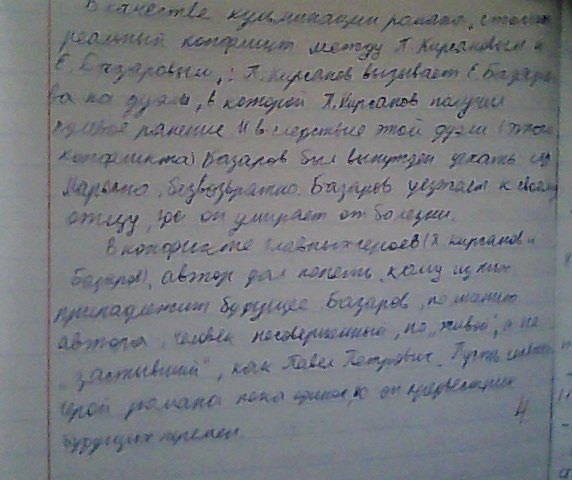 В качестве кульминации романа, стоит
реальный конфликт между П. Кирсановым и
Е. Базаровым, : П. Кирсанов вызывает Е. Базаро-
ва на дуэль, в которой П. Кирсанов получил
пулевое ранение. И в следствие этой дуэли (этого
конфликта) Базаров был вынужден уехать из
Марьино, безвозвратно. Базаров уезжает к своему
отцу, где он умирает от болезни.
В конфликте главных героев (П. Кирсанов и
Базаров), автор дал понять, кому из них
принадлежит будущее. Базаров, по мнению
автора, человек несовершенный, но „живой", а не
„застывший", как Павел Петрович. Пусть
герой романа пока одинок, но он предвестник
будущих перемен.
4